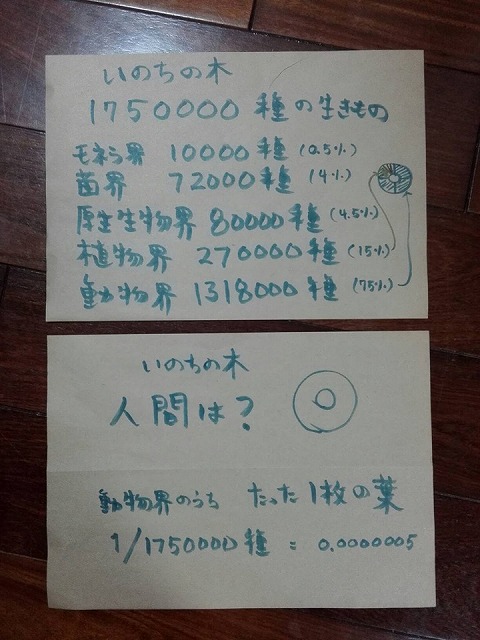 いのちの木
1750000 種の生きもの
モネラ界 10000種 (0.5%)
菌界 72000種 (4%)
厚生生物界 80000種 (4.5%)
植物界 270000種 (15%)
動物界 1318000種 (75%)
いのちの木
人間は?
動物界のうち たった1枚の葉
1/1750000種 = 0.0000005